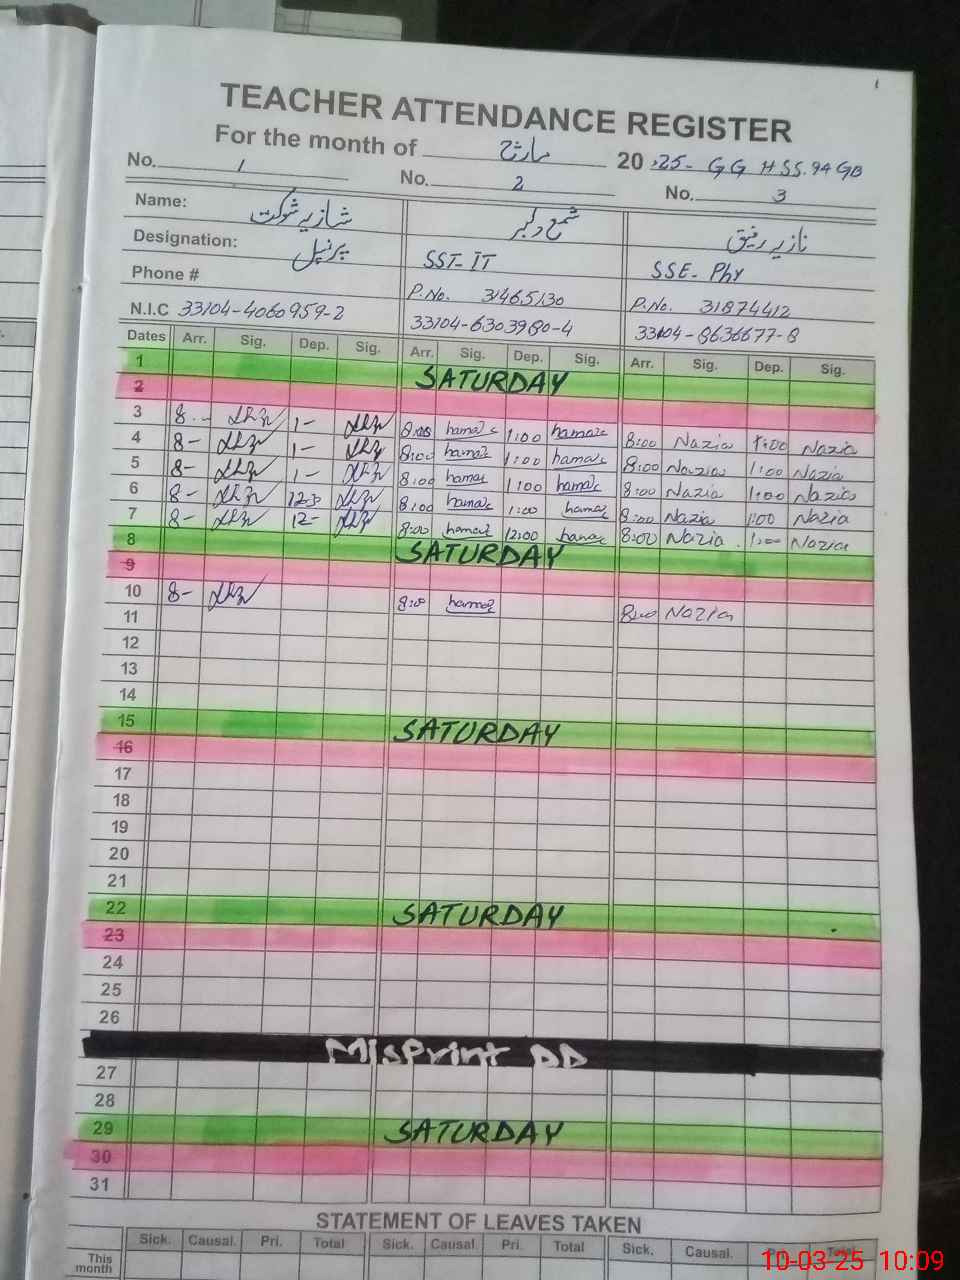 TEACHER ATTENDANCE REGISTER
For the month of مارچ 2025- GGHSS. 94 GB
No. 1 No. 2 No. 3
Name: شازیہ شوکت شمع دلبر نازیہ رفیق
Designation: پرنسپل SST-IT SSE-Phy
Phone # P.No. 31465130 P.No. 31874412
N.I.C 33104-4060959-2 33104-6303980-4 33104-8636677-8
Dates Arr. Sig. Dep. Sig. Arr. Sig. Dep. Sig. Arr. Sig. Dep. Sig.
1 SATURDAY
2
3 8- 1- 8:00 1:00 8:00 Nazia 1:00 Nazia
4 8- 1- 8:00 1:00 8:00 Nazia 1:00 Nazia
5 8- 1- 8:00 1:00 8:00 Nazia 1:00 Nazia
6 8- 8:00 1:00 8:00 Nazia 1:00 Nazia
7 8- 12- 8:00 12:00 8:00 Nazia 1:00 Nazia
8 SATURDAY
9
10 8- 8:00 8:00 Nazia
11
12
13
14
15 SATURDAY
16
17
18
19
20
21
22 SATURDAY
23
24
25
26
MisPrint DD
27
28
29 SATURDAY
30
31
STATEMENT OF LEAVES TAKEN
Sick. Causal. Pri. Total Sick. Causal. Pri. Total Sick. Causal. Pri. Total
This month
10-03-25 10:09